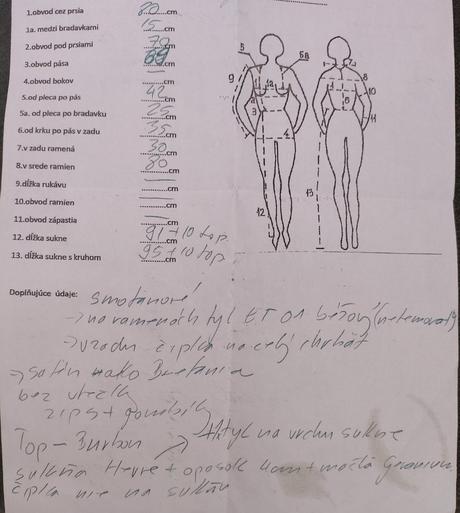 1.obvod cez prsia 80 cm
1a. medzi bradavkami 15 cm
2.obvod pod prsiami 70 cm
3.obvod pása 69 cm
4.obvod bokov — cm
5.od pleca po pás 42 cm
5a. od pleca po bradavku 25 cm
6.od krku po pás v zadu 35 cm
7.v zadu ramená 30 cm
8.v srede ramien 30 cm
9.dĺžka rukávu — cm
10.obvod ramien — cm
11.obvod zápastia — cm
12. dĺžka sukne 91+10 top. cm
13. dĺžka sukne s kruhom 95+10 top. cm
5 5a 9 1a 1 2 3 4 12
7 8 10 6 11 13
Doplňujúce údaje: smotanové
→ na ramenách tyl ET 01 béžový
→ vzadu čipka na celý chrbát
→ satén ako
bez vlečky
zips + gombíky
Top – Burbon → tyl na vrchu sukne
sukňa + opasok 4cm +
čipka nie na sukňu